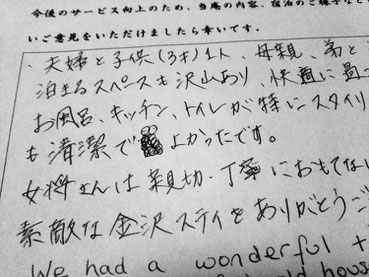 今後のサービス向上のため、当庵の内容、宿泊のご様子など
いご意見をいただけましたら幸いです。
・夫婦と子供(3才)1人、母親、弟と
泊まるスペースも沢山あり、快適に過ご
お風呂、キッチン、トイレが特にスタイリ
も清潔で よかったです。
女将さんは親切・丁寧におもてない
素敵な金沢ステイをありがとうご
We had a wonderful
and hous